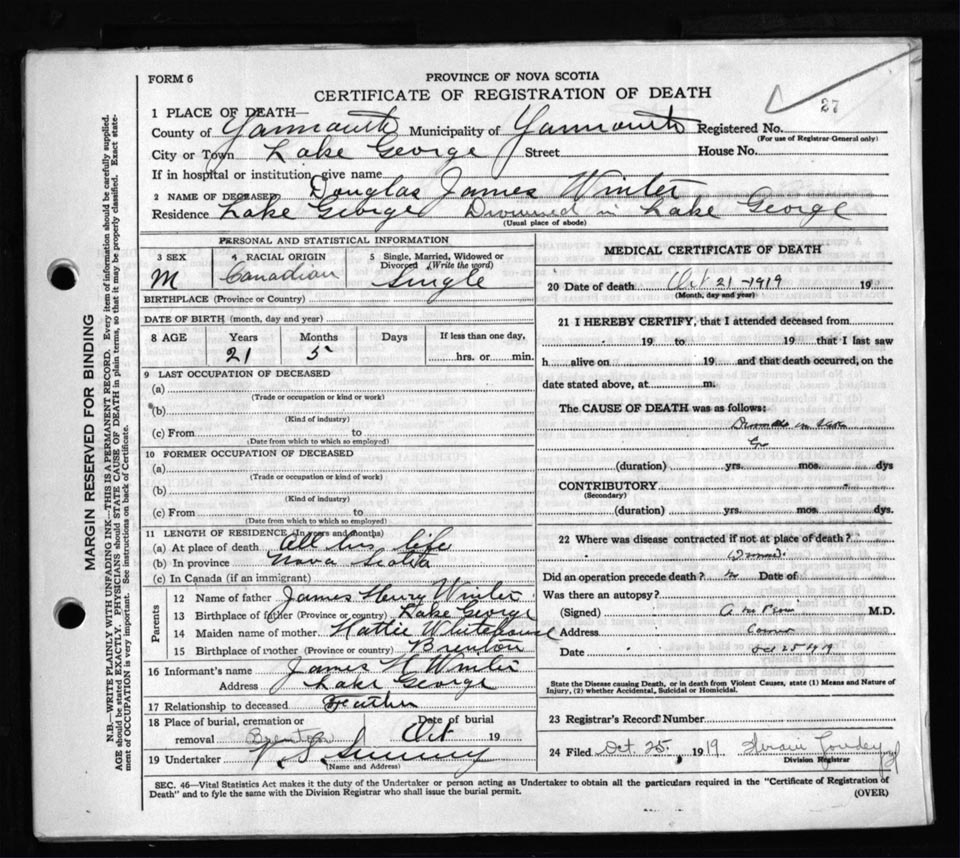 FORM 6
PROVINCE OF NOVA SCOTIA
CERTIFICATE OF REGISTRATION OF DEATH
27
1 PLACE OF DEATH—
County of Yarmouth Municipality of Yarmouth Registered No.
(For use of Registrar-General only)
City or Town Lake George Street House No.
If in hospital or institution, give name
2 NAME OF DECEASED Douglas James Winter
Residence Lake George Drowned in Lake George
(Usual place of abode)
PERSONAL AND STATISTICAL INFORMATION
3 SEX M
4 RACIAL ORIGIN Canadian
5 Single, Married, Widowed or Divorced (Write the word) Single
BIRTHPLACE (Province or Country)
DATE OF BIRTH (month, day and year)
8 AGE Years Months Days If less than one day,
21 5 hrs. or min.
9 LAST OCCUPATION OF DECEASED
(a)
(Trade or occupation or kind or work)
(b)
(Kind of industry)
(c) From to
(Date from which to which so employed)
10 FORMER OCCUPATION OF DECEASED
(a)
(Trade or occupation or kind of work)
(b)
(Kind of industry)
(c) From to
(Date from which to which so employed)
11 LENGTH OF RESIDENCE (In years and months)
(a) At place of death All his life
(b) In province Nova Scotia
(c) In Canada (if an immigrant)
Parents
12 Name of father James Henry Winter
13 Birthplace of father (Province or country) Lake George
14 Maiden name of mother Hattie Whitehouse
15 Birthplace of mother (Province or country) Brenton
16 Informant's name James H Winter
Address Lake George
17 Relationship to deceased Father
18 Place of burial, cremation or removal Brenton
Date of burial Oct 19
19 Undertaker
(Name and Address)
MEDICAL CERTIFICATE OF DEATH
20 Date of death Oct 21-1919 19
(Month, day and year)
21 I HEREBY CERTIFY, that I attended deceased from
19 to 19 that I last saw
h alive on 19 and that death occurred, on the
date stated above, at m.
The CAUSE OF DEATH was as follows:
Drowned in Lake
(duration) yrs. mos. dys
CONTRIBUTORY
(Secondary)
(duration) yrs. mos. dys.
22 Where was disease contracted if not at place of death?
Did an operation precede death? Date of
Was there an autopsy?
(Signed) M.D.
Address
Date Oct 25 1919
State the Disease causing Death, or in death from Violent Causes, state (1) Means and Nature of Injury, (2) whether Accidental, Suicidal or Homicidal.
23 Registrar's Record Number
24 Filed Oct. 25, 1919.
Division Registrar
SEC. 46—Vital Statistics Act makes it the duty of the Undertaker or person acting as Undertaker to obtain all the particulars required in the "Certificate of Registration of
Death" and to fyle the same with the Division Registrar who shall issue the burial permit.
(OVER)
MARGIN RESERVED FOR BINDING
N.B.—WRITE PLAINLY WITH UNFADING INK—THIS IS A PERMANENT RECORD. Every item of information should be carefully supplied.
AGE should be stated EXACTLY. PHYSICIANS should STATE CAUSE OF DEATH in plain terms, so that it may be properly classified. Exact statement of OCCUPATION is very important. See instructions on back of Certificate.